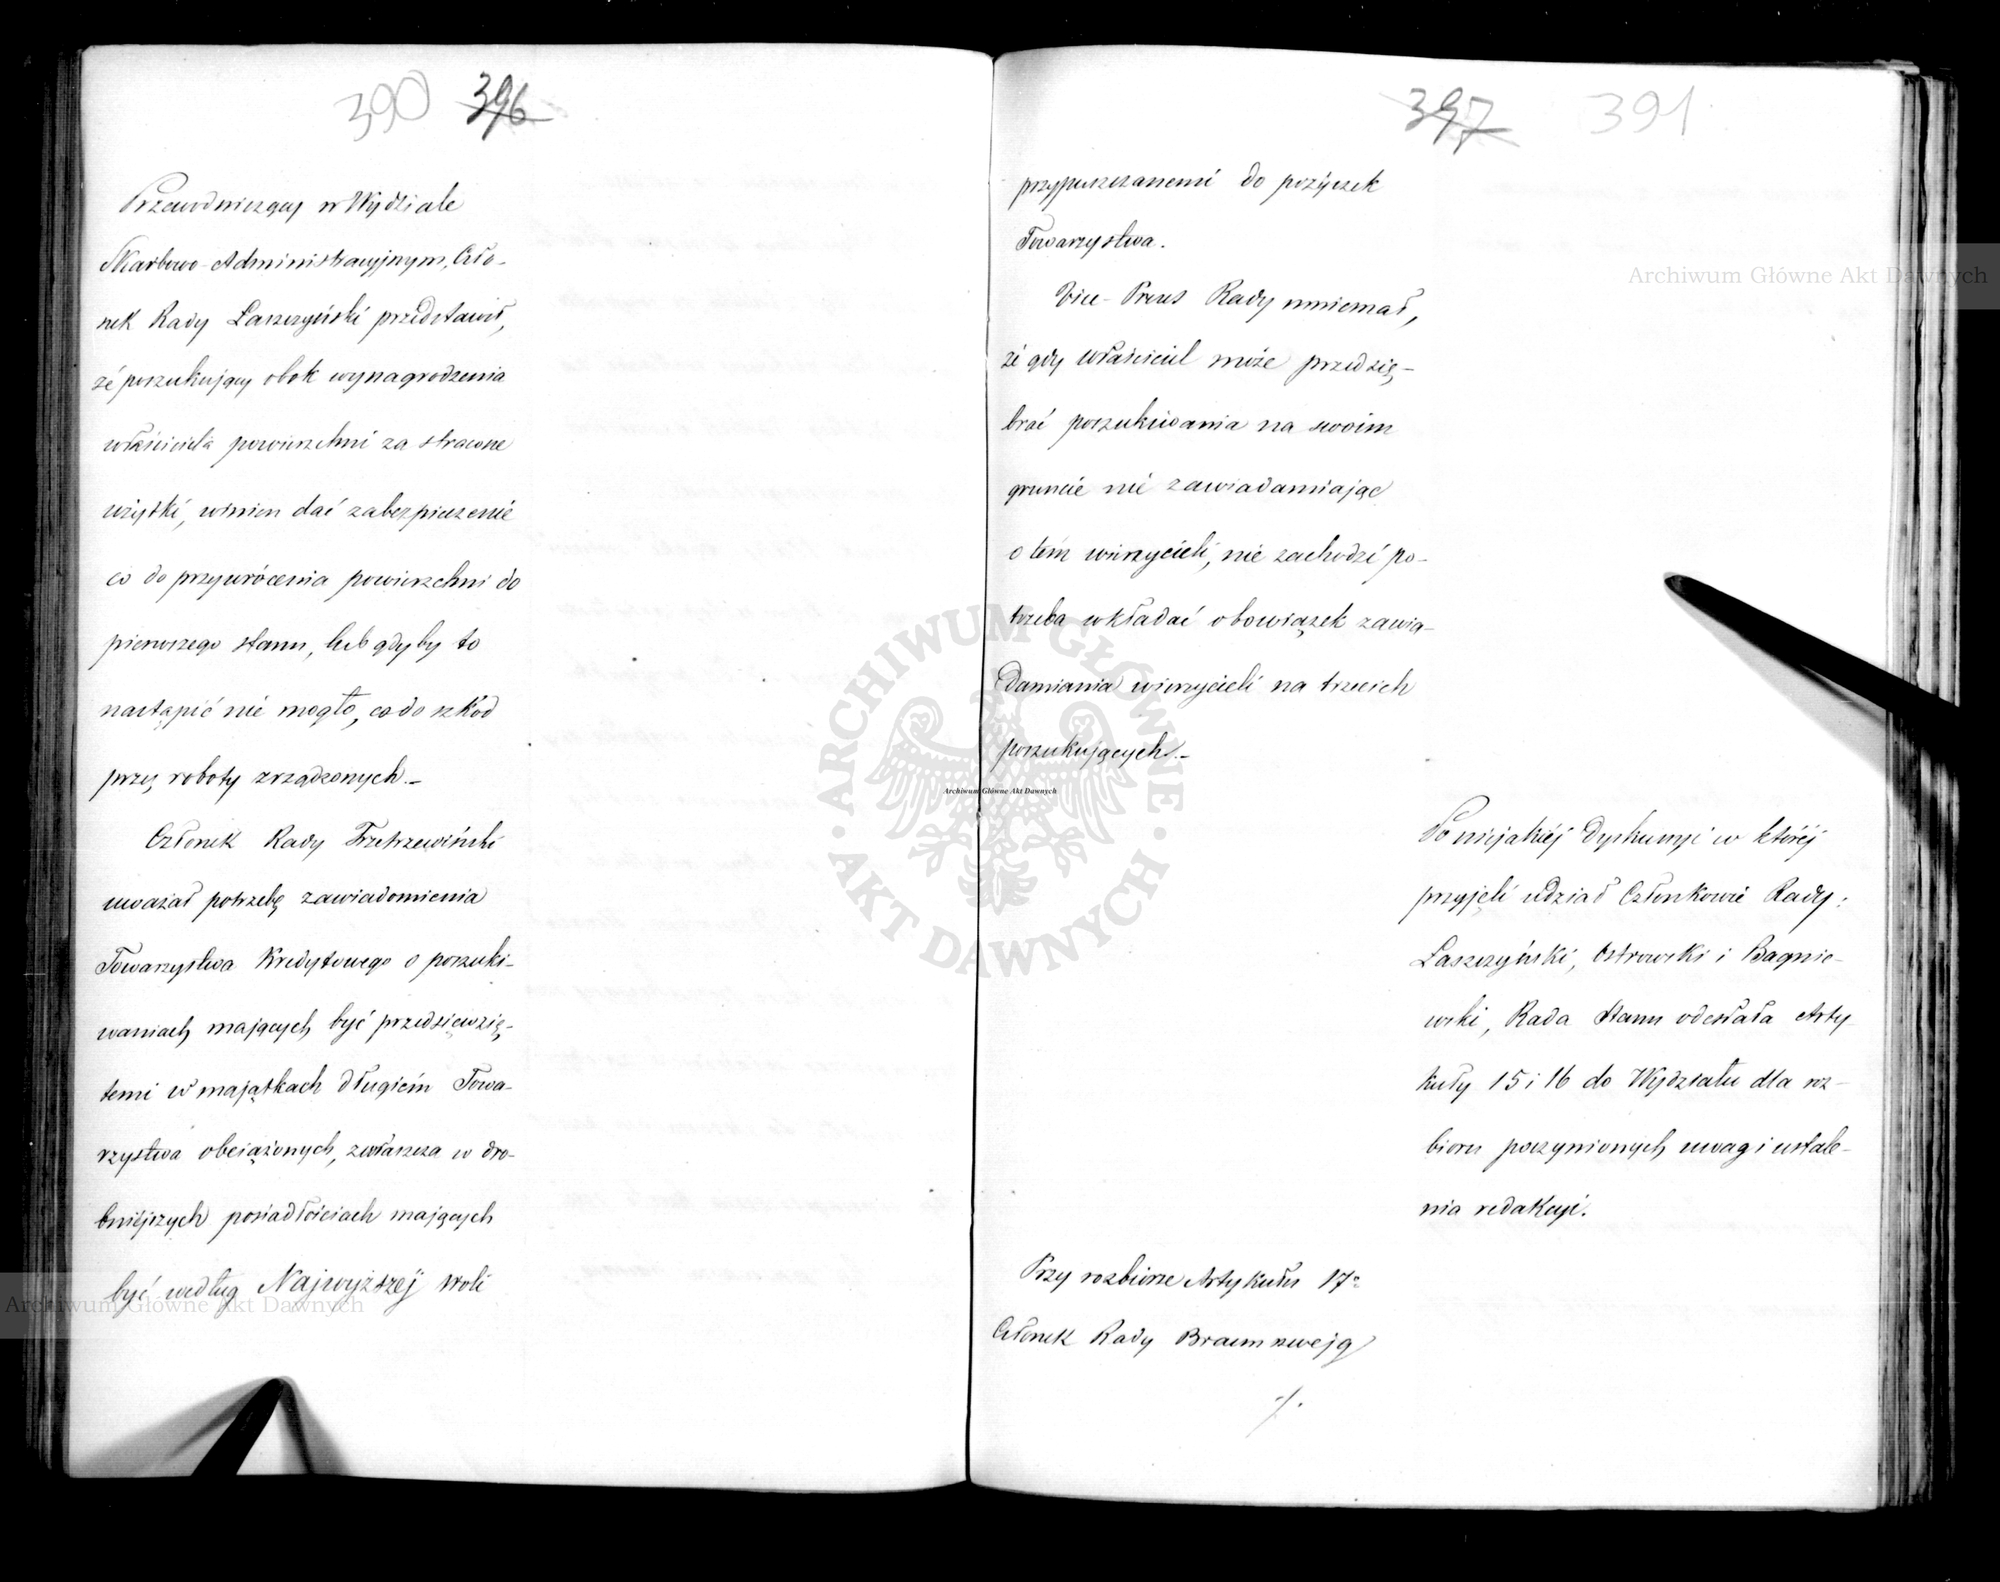 390 396
Przewodniczący w Wydziale
Skarbowo-Administracyjnym, Czło-
nek Rady Laszczyński przedstawił,
że poszukujący obok wynagrodzenia
właściciela powierzchni za stracone
użytki, winien dać zabezpieczenie
co do przywrócenia powierzchni do
pierwszego stanu, lub gdyby to
nastąpić nie mogło, co do szkód
przez roboty zrządzonych.-
Członek Rady Trzetrzewiński
uważał potrzebę zawiadomienia
Towarzystwa Kredytowego o poszuki-
waniach, mających być przedsięwzię-
temi w majątkach długiem Towa-
rzystwa obciążonych, zwłaszcza w dro-
bniejszych posiadłościach mających
być według Najwyższej Woli
397 391
przypuszczanemi do pożyczek
Towarzystwa.
Vice-Prezes Rady mniemał,
że gdy właściciel może przedsię-
brać poszukiwania na swoim
gruncie nie zawiadamiając
o tém wierzycieli, nie zachodzi po-
trzeba wkładać obowiązek zawia-
damiania wierzycieli na trzecich
poszukujących.-
Po niejakiéj dyskussyi w któréj
przyjęli udział Członkowie Rady:
Laszczyński, Ostrowski i Bagnie-
wski, Rada Stanu odesłała Arty-
kuły 15 i 16 do Wydziału dla roz-
bioru poczynionych uwag i ustale-
nia redakcyi.
Przy rozbiorze Artykułu 17º
Członek Rady Braunszwejg
./.
Archiwum Główne Akt Dawnych
Archiwum Główne Akt Dawnych
Archiwum Główne Akt Dawnych
ARCHIWUM GŁÓWNE AKT DAWNYCH